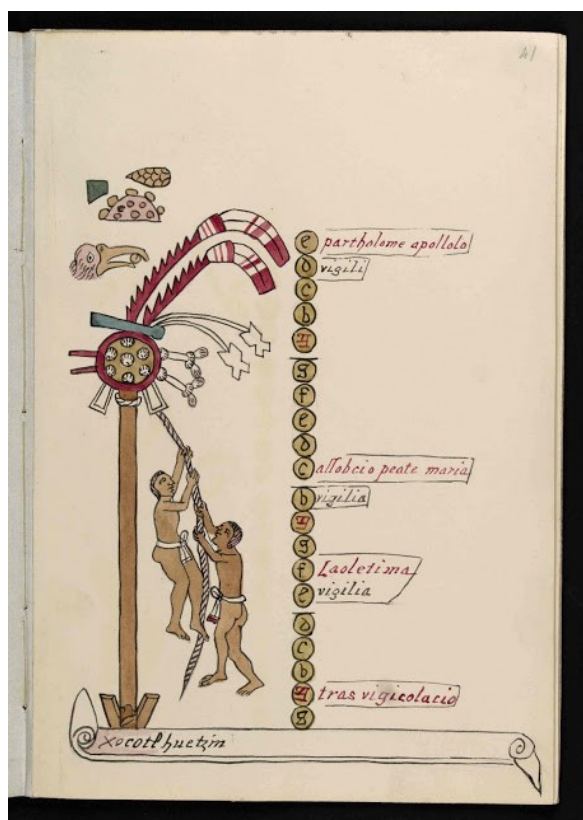 41
e partholome apollolo
d vigili
c
b
A
g
f
e
d
c allobcio peate maria
b vigilia
A
g
f Laoletima
e vigilia
d
c
b
A tras vigicolacio
g
xocotlhuetzin